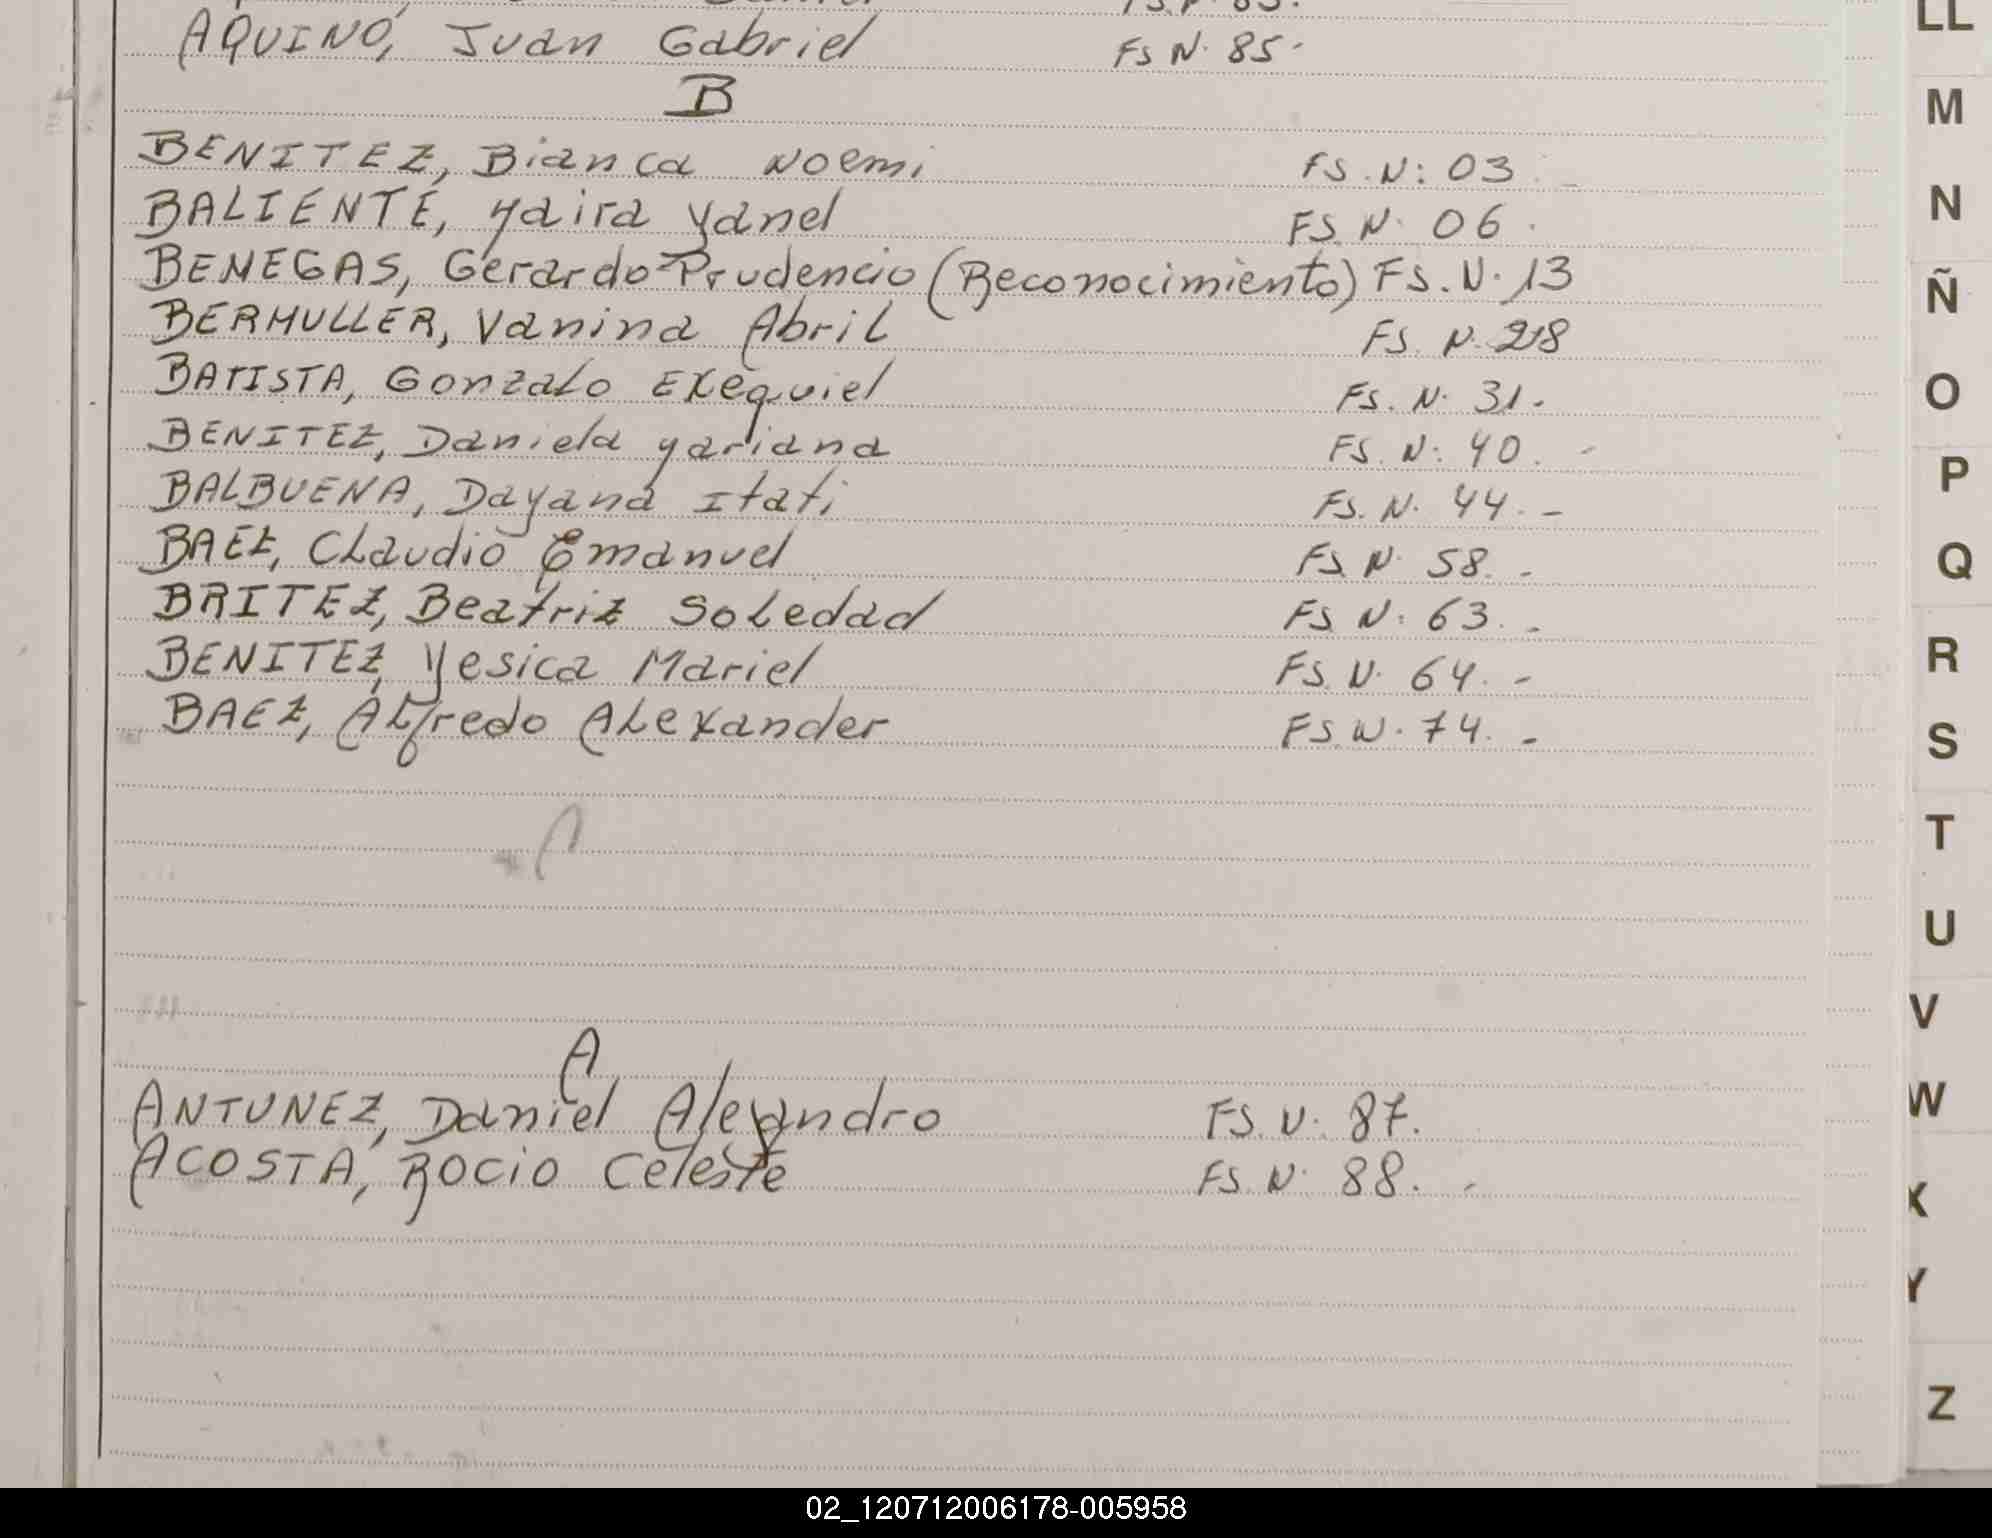 AQUINO, Juan Gabriel FS N. 85.
B
BENITEZ, Bianca Noemi FS. N: 03.
BALIENTE, Yaira Yanel FS. N. 06.
BENEGAS, Gerardo Prudencio (Reconocimiento) FS. N. 13
BERMULLER, Vanina Abril FS. N.
BATISTA, Gonzalo Exequiel FS. N. 31.
BENITEZ, Daniela Yariana FS. N: 40. -
BALBUENA, Dayana Itati FS. N. 44. -
BAEZ, Claudio Emanuel FS N. 58. -
BRITEZ, Beatriz Soledad FS N. 63. -
BENITEZ, Yesica Mariel FS. N. 64. -
BAEZ, Alfredo Alexander FS. N. 74. -
A
ANTUNEZ, Daniel Alejandro FS. N. 87.
ACOSTA, Rocio Celeste FS. N. 88. -
LL
M
N
Ñ
O
P
Q
R
S
T
U
V
W
X
Y
Z
02_120712006178-005958